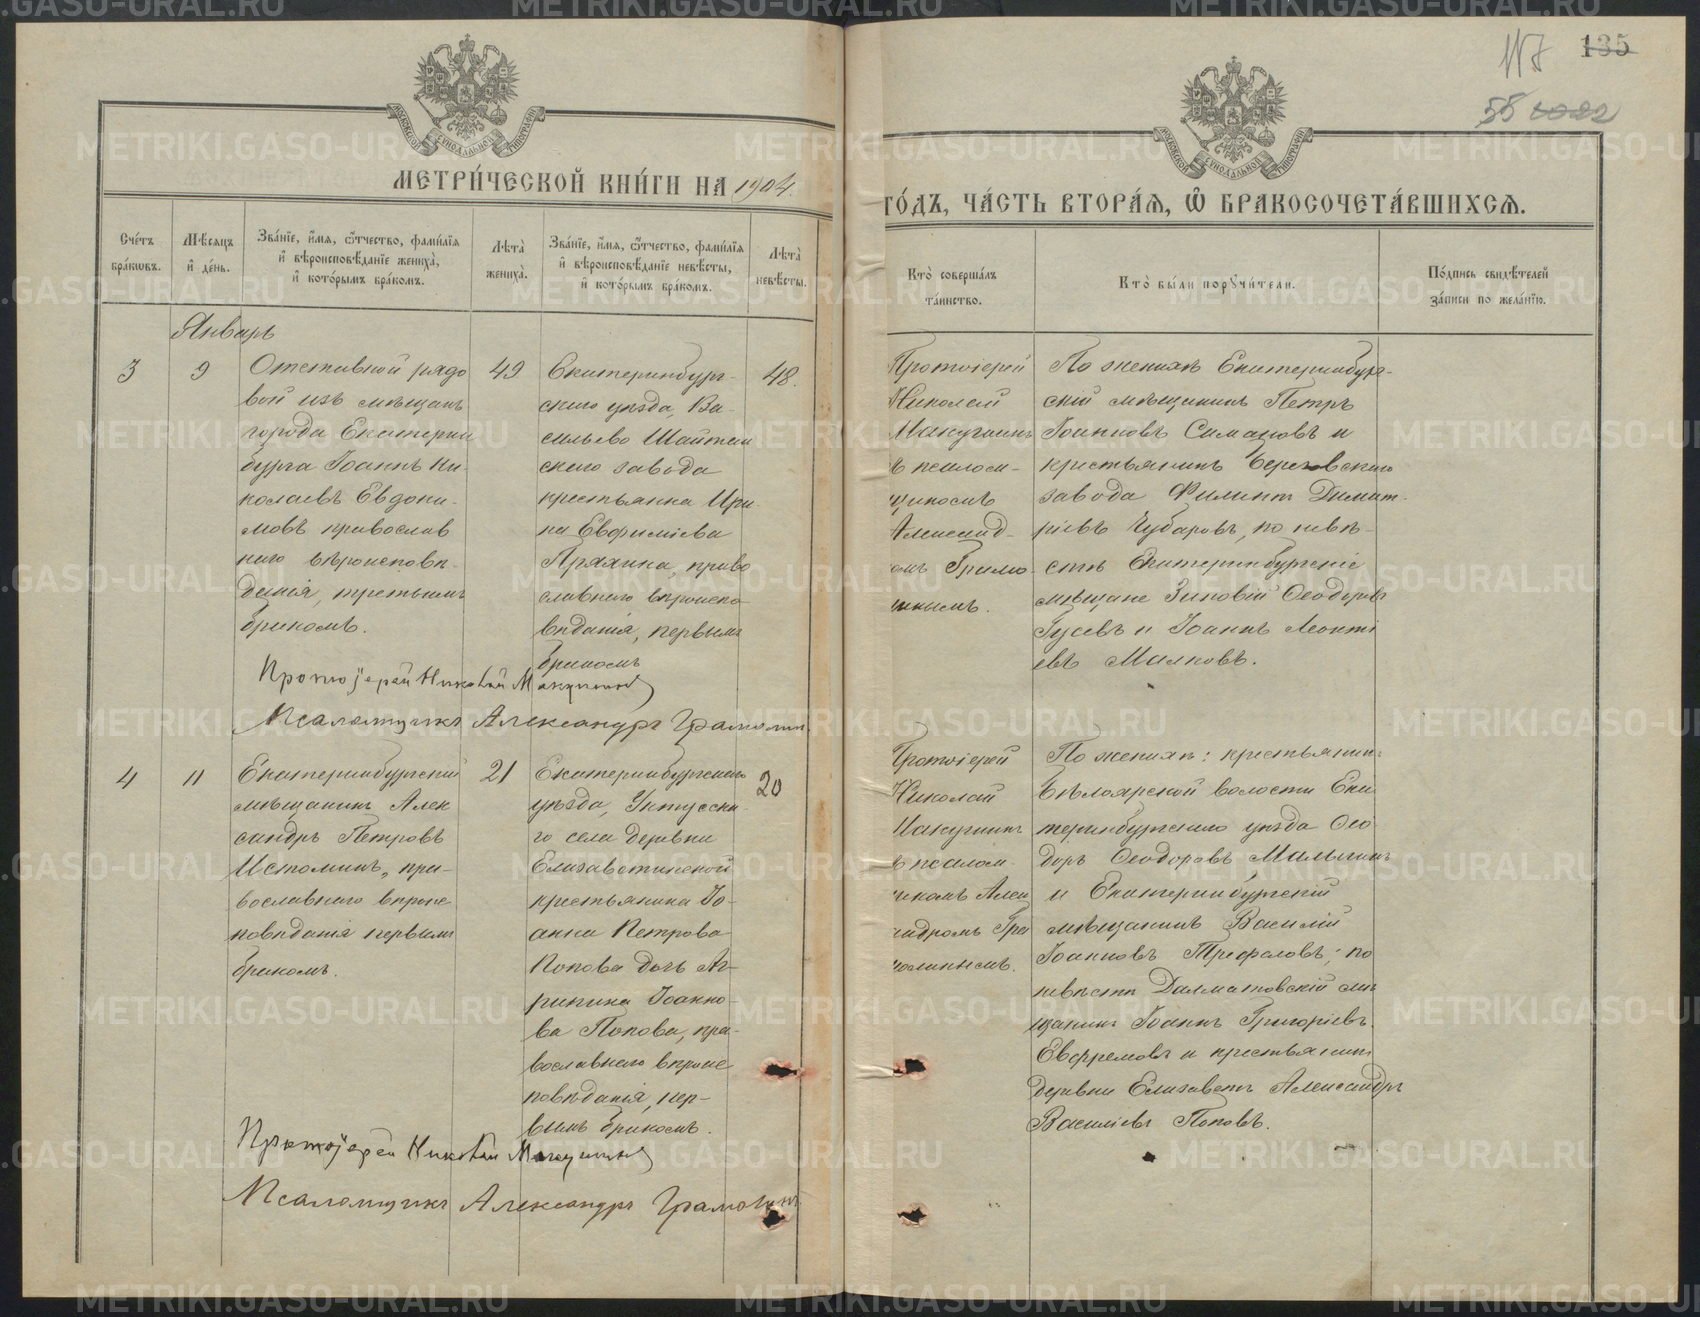 117
135
55
МЕТРИ́ЧЕСКОЙ КНИ́ГИ НА 1904.
ГО́ДЪ, ЧА́СТЬ ВТОРА́Я, Ѽ БРАКОСОЧЕТА́ВШИХСЯ.
Сче́тъ бра́ковъ.
Мѣ́сяцъ и҆ де́нь.
Зва́нїе, и҆́мя, ѻ҆́тчество, фами́лїя
и҆ вѣроисповѣ́данїе жениха̀,
и҆ кото́рымъ бра́комъ.
Лѣта̀ жениха̀.
Зва́нїе, и҆́мя, ѻ҆́тчество, фами́лїя
и҆ вѣроисповѣ́данїе невѣ́сты,
и҆ кото́рымъ бра́комъ.
Лѣта̀ невѣ́сты.
Кто̀ соверша́лъ та́инство.
Кто̀ бы́ли поручи́тели.
По́дпись свидѣ́телей за́писи по жела́нїю.
Январь
3
9
Отставной рядо
вой изъ мѣщанъ
города Екатерин
бурга Іоаннъ Ни-
колаевъ Евдоки-
мовъ православ
наго вѣроисповѣ-
данія, третьимъ
бракомъ.
49
Екатеринбург-
скаго уѣзда, Ва-
сильево Шайтан
скаго завода
крестьянка Ири-
на Евфиміева
Пряхина, право
славнаго вѣроиспо-
вѣданія, первымъ
бракомъ
48.
Протоіерей
Николай
Макушинъ
ъ псалом-
щикомъ
Александ-
омъ Грамо-
инымъ.
По женихѣ Екатеринбург-
скій мѣщанинъ Петръ
Іоанновъ Симановъ и
крестьянинъ Березовскаго
завода Филиппъ Димит-
ріевъ Чубаровъ, по невѣ-
стѣ Екатеринбургскіе
мѣщане Зиновій Ѳеодоровъ
Гусевъ и Іоаннъ Леонті
евъ Малковъ.
Протоіерей Николай Макушинъ
Псаломщикъ Александръ Грамолин
4
11
Екатеринбургскій
мѣщанинъ Алек
сандръ Петровъ
Истоминъ, пра-
вославнаго вѣроис
повѣданія первымъ
бракомъ.
21
Екатеринбургскаго
уѣзда, Уктусска-
го села деревни
Елизаветинской
крестьянина Іо-
анна Петрова
Попова дочь Аг-
рипина Іоанно-
ва Попова, пра-
вославнаго вѣроис
повѣданія, пер-
вымъ бракомъ.
20
Протоіерей
Николай
Макушинъ
ъ псалом-
щикомъ Алек
андромъ Гра
молинымъ.
По женихѣ: крестьянин
Бѣлоярской волости Ека
теринбургскаго уѣзда Ѳео
доръ Ѳеодоровъ Малыгинъ
и Екатеринбургскій
мѣщанинъ Василій
Іоанновъ Трефаловъ; по
невѣстѣ Далматовскій мѣ
щанинъ Іоаннъ Григоріевъ
Евфремовъ и крестьянин
деревни Елизаветъ Александръ
Василіевъ Поповъ.
Протоіерей Николай Макушинъ
Псаломщикъ Александръ Грамолинъ